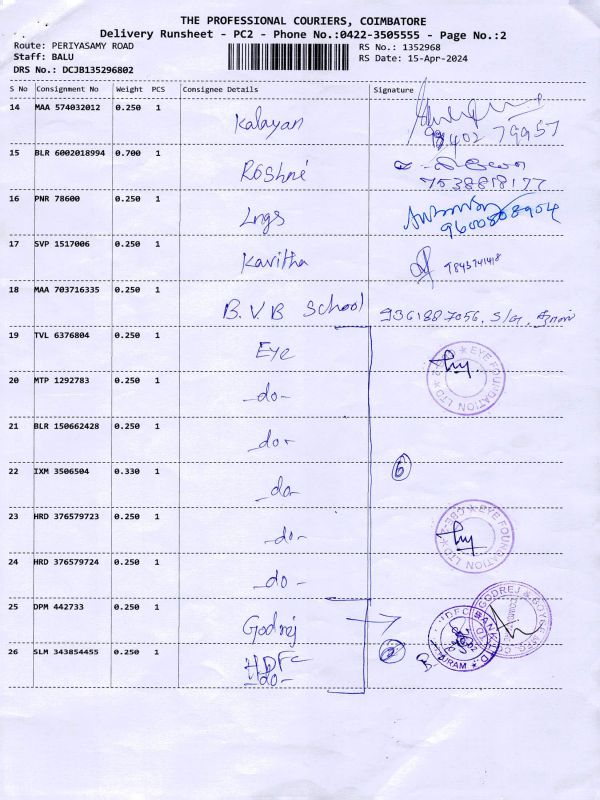 THE PROFESSIONAL COURIERS, COIMBATORE
Delivery Runsheet - PC2 - Phone No.:0422-3505555 - Page No.:2
Route: PERIYASAMY ROAD
RS No.: 1352968
Staff: BALU
RS Date: 15-Apr-2024
DRS No.: DCJB135296802
S No Consignment No Weight PCS Consignee Details Signature
14 MAA 574032012 0.250 1 Kalayan
98402 79957
15 BLR 6002018994 0.700 1 Roshni
7538818177
16 PNR 78600 0.250 1 Lngs
9600808904
17 SVP 1517006 0.250 1 Kavitha
18 MAA 703716335 0.250 1 B.V.B School 9361887056. S/G.
19 TVL 6376804 0.250 1 Eye
EYE FOUNDATION LTD
20 MTP 1292783 0.250 1 -do-
21 BLR 150662428 0.250 1 -do-
22 IXM 3506504 0.330 1 -do-
6
23 HRD 376579723 0.250 1 -do-
EYE FOUNDATION LTD CBE-2
24 HRD 376579724 0.250 1 -do-
25 DPM 442733 0.250 1 Godrej
GODREJ &
HDFC BANK LTD.
26 SLM 343854455 0.250 1 HDFC
-do-
2